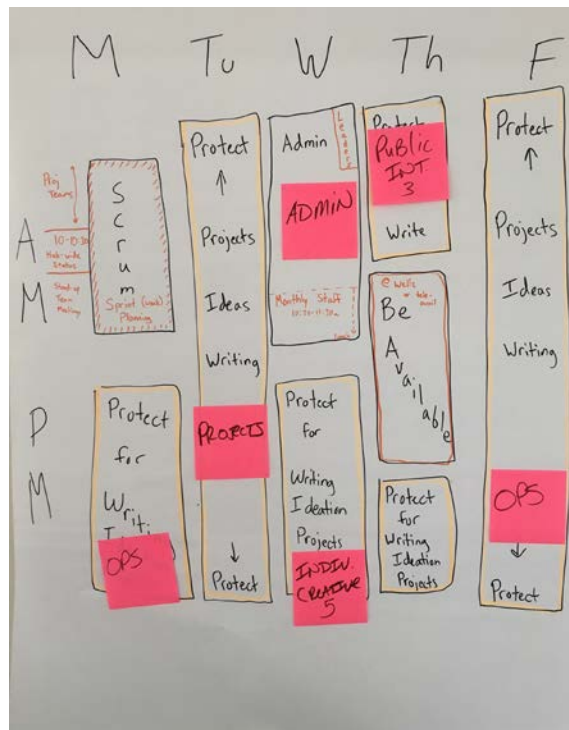 M Tu W Th F
A
M
P
M
Proj
Teams
10-10:30
Hub-wide
Status
Stand-up
Team
S
c
r
u
m
Sprint (week)
Planning
Protect
for
Writi
OPS
Protect
Projects
Ideas
Writing
PROJECTS
Protect
Admin
Leaders
ADMIN
Monthly Staff
10:30-11:30a
Protect
for
Writing
Ideation
Projects
INDIV.
CREATIVE
5
Protect
PUBLIC
INT
3
Write
Be
Available
Protect
for
Writing
Ideation
Projects
Protect
Projects
Ideas
Writing
OPS
Protect